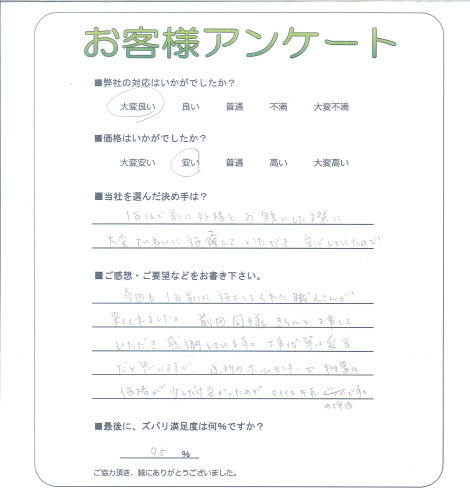 お客様アンケート
■弊社の対応はいかがでしたか？
大変良い 良い 普通 不満 大変不満
■価格はいかがでしたか？
大変安い 安い 普通 高い 大変高い
■当社を選んだ決め手は？
1年ほど前に外構をお願いした際に
大変ていねいに施工していただき安心していたので
■ご感想・ご要望などをお書き下さい。
今回も1年前に施工してくれた職人さんが
来てくれました。前回同様きちんと工事して
いただき感謝しています。工事代等は妥当
だと思いますが、近所のホームセンターで物置の
価格が少しだけ良かったのがマイナス5点です。
の理由
■最後に、ズバリ満足度は何％ですか？
95 ％
ご協力頂き、誠にありがとうございました。